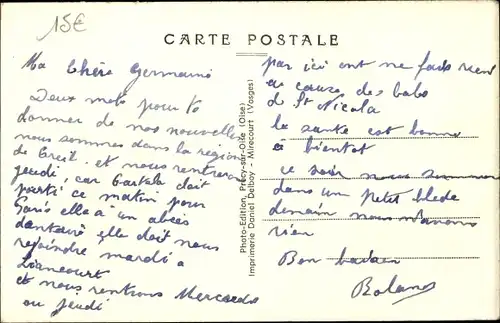 15€
CARTE POSTALE
Ma Chère Germaine
Deux mots pour te
donner de nos nouvelles
nous sommes dans la région
de Creil. et nous rentrerons
jeudi, car doit
parti ce matin pour
Paris elle à un abcès
dentaire elle doit nous
rejoindre mardi à
Liancourt
et nous rentrons Mercredi
ou jeudi
Photo-Edition, Précy-sur-Oise (Oise)
Imprimerie Daniel Delboy - Mirecourt (Vosges)
par ici ont ne fais rien
a cause des bals
de St Nicola
la santé est bonne
a bientot
ce soir nous sommes
dans un petit blede
demain nous n'avons
rien
Bon
Roland